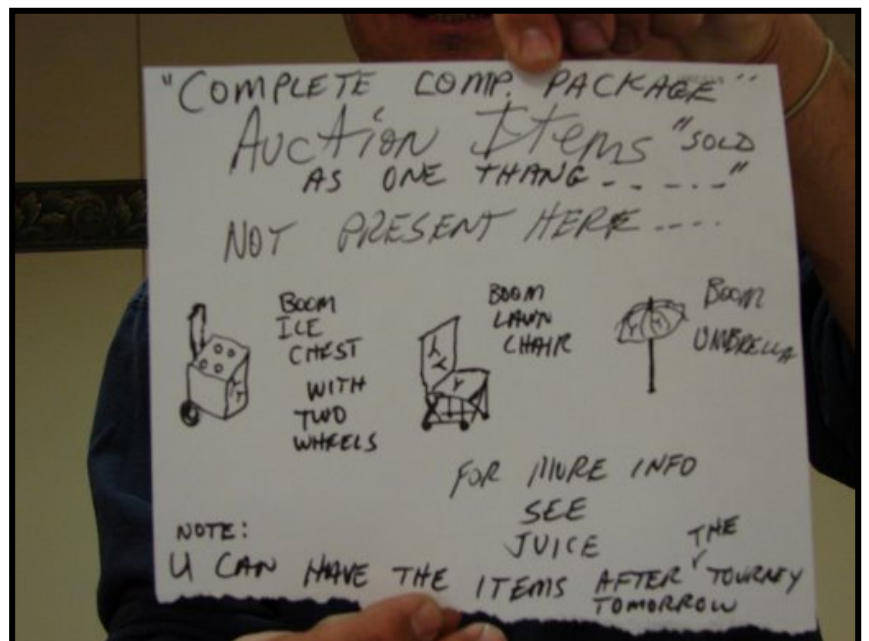 "COMPLETE COMP. PACKAGE"
Auction Items "SOLD
AS ONE THANG - - - - - "
NOT PRESENT HERE - - - -
BOOM
ICE
CHEST
WITH
TWO
WHEELS
BOOM
LAWN
CHAIR
BOOM
UMBRELLA
FOR MORE INFO
SEE
JUICE
NOTE:
U CAN HAVE THE ITEMS AFTER THE TOURNEY
TOMORROW